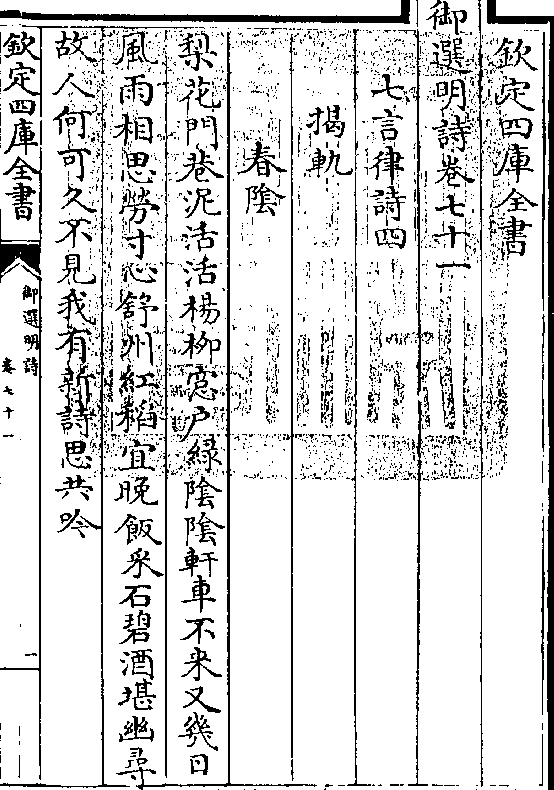 欽定四庫全書
御選明詩卷七十一
七言律詩四
揭軌
春陰
梨花門巷泥活活楊柳窻户綠陰陰軒車不来又幾日
風雨相思勞寸心舒州紅稻宜晚飯采石碧酒堪幽尋
故人何可久不見我有新詩思共吟
欽定四庫全書
御選明詩
卷七十一
一